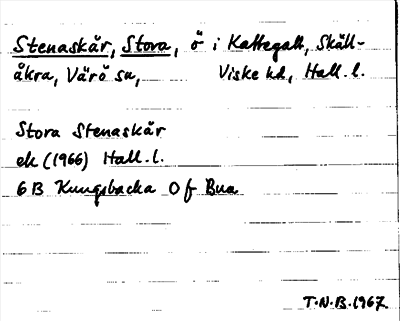 Stenaskär, Stora, ö i Kattegatt, Skäll-
åkra, Värö sn, Viske hd, Hall. l.
Stora Stenaskär
ek (1966) Hall. l.
6 B Kungsbacka 0 f Bua
T.N.B. 1967